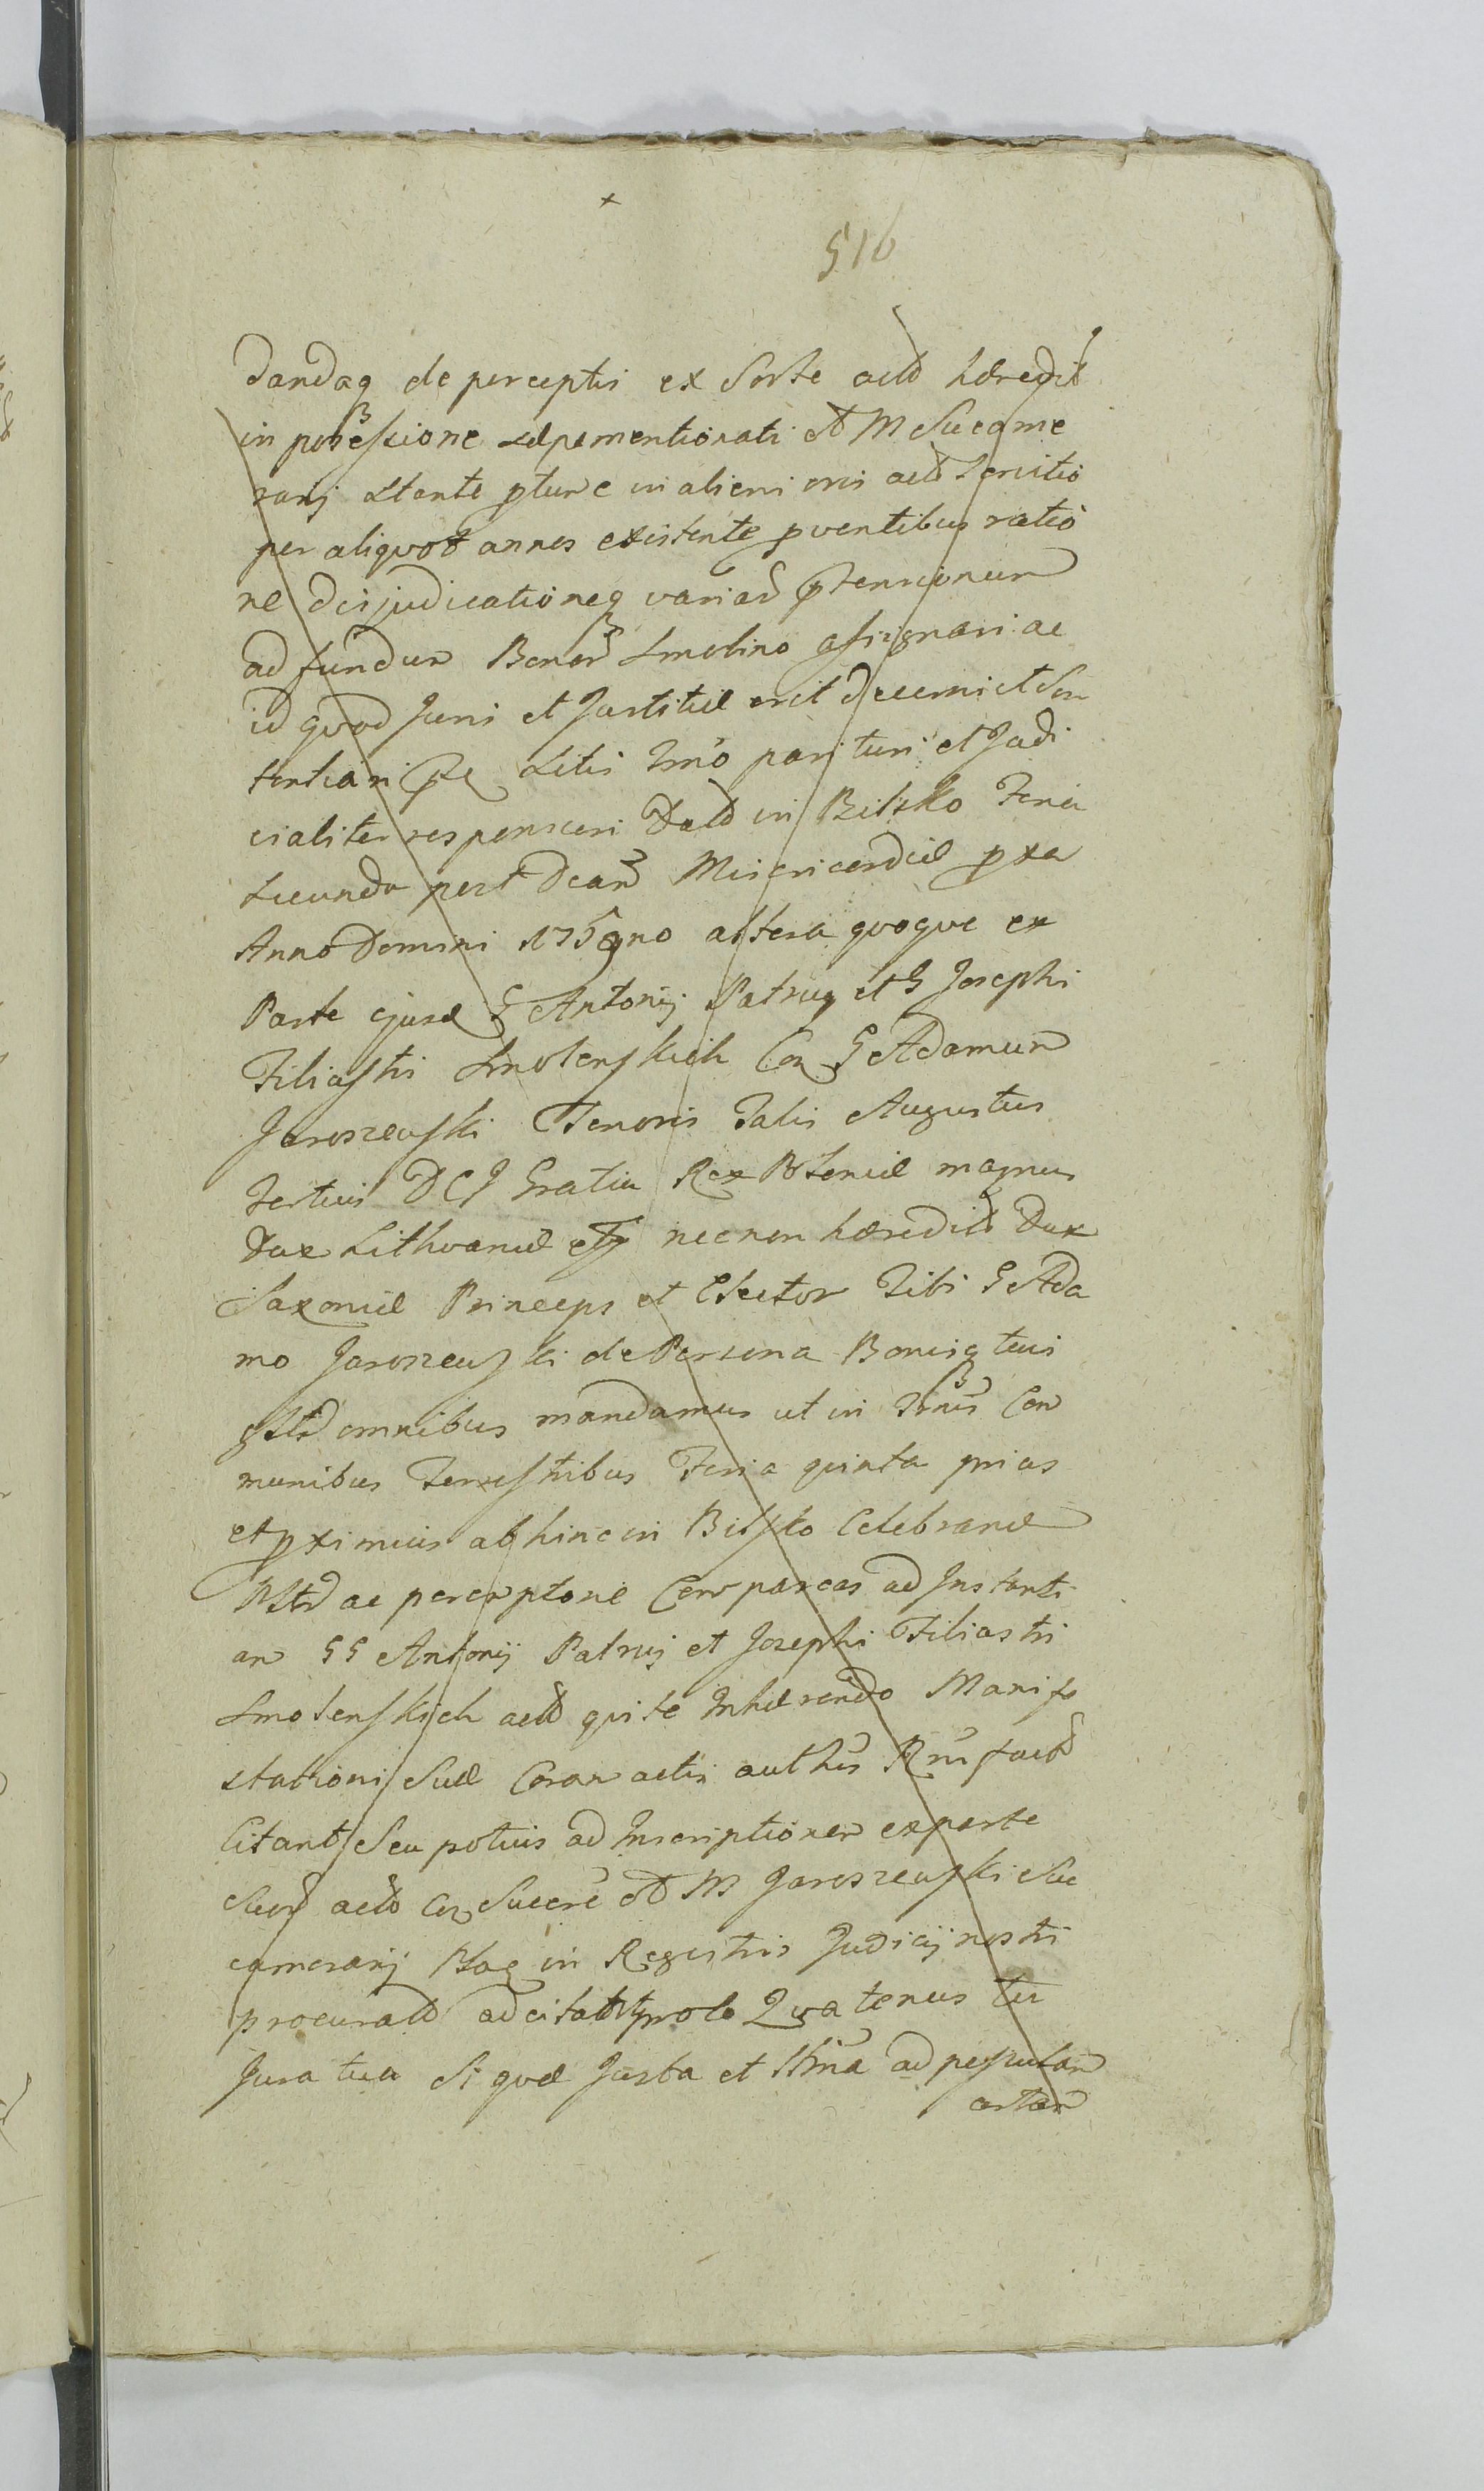 x
516
dandaq de perceptis ex Sorte actò hæredit
in possessione sæpementionati olt M Succame
rarij stante ptunc in alieni æris actò servitio
per aliquot annos existente pventibus ratio
ne dijudicationeq variar ptensionum
ad fundum Bonor Smolino assignari ac
id quod Juris et Justitiæ erit decerni et Sen
tentiari pte Litis Trno parituri et Judi
cialiter responsuri Datò in Bilsko Feria
secunda post Dcam Misericordiæ pxa
Anno Domini 1759no altera quoque ex
Parte ejusd G Antonij Patruy et G Josephi
Filiastri Smolenskich Con G Adamum
Jaroszewski Tenoris Talis Augustus
Tertius D G Gratia Rex Poloniæ magnus
Dux Lithvaniæ etc necnon hæredit Dux
Saxoniæ Princeps et Elector Tibi G Ada
mo Jaroszewski de Persona Bonisq tuis
gstd omnibus mandamus ut in Trnis Com
munibus Terrestribus Feria quinta prius
et pximius abhinc in Bilsko Celebrand
Pstd ac peremptorie Compareas ad Instanti
am GG Antonij Patruj et Josephi Filiastri
Smolenskich actò qui te Inhærendo Manife
stationi Suæ Coram actis auth
Citant Seu potius ad Inscriptionem ex parte
Suor actò Con Succre olt M Jaroszewski Suc
camerarij in Registris Judicij nostri
procuratò adcitatt prole Quatenus tu
Jura tua Si quæ Justa et ltima ad